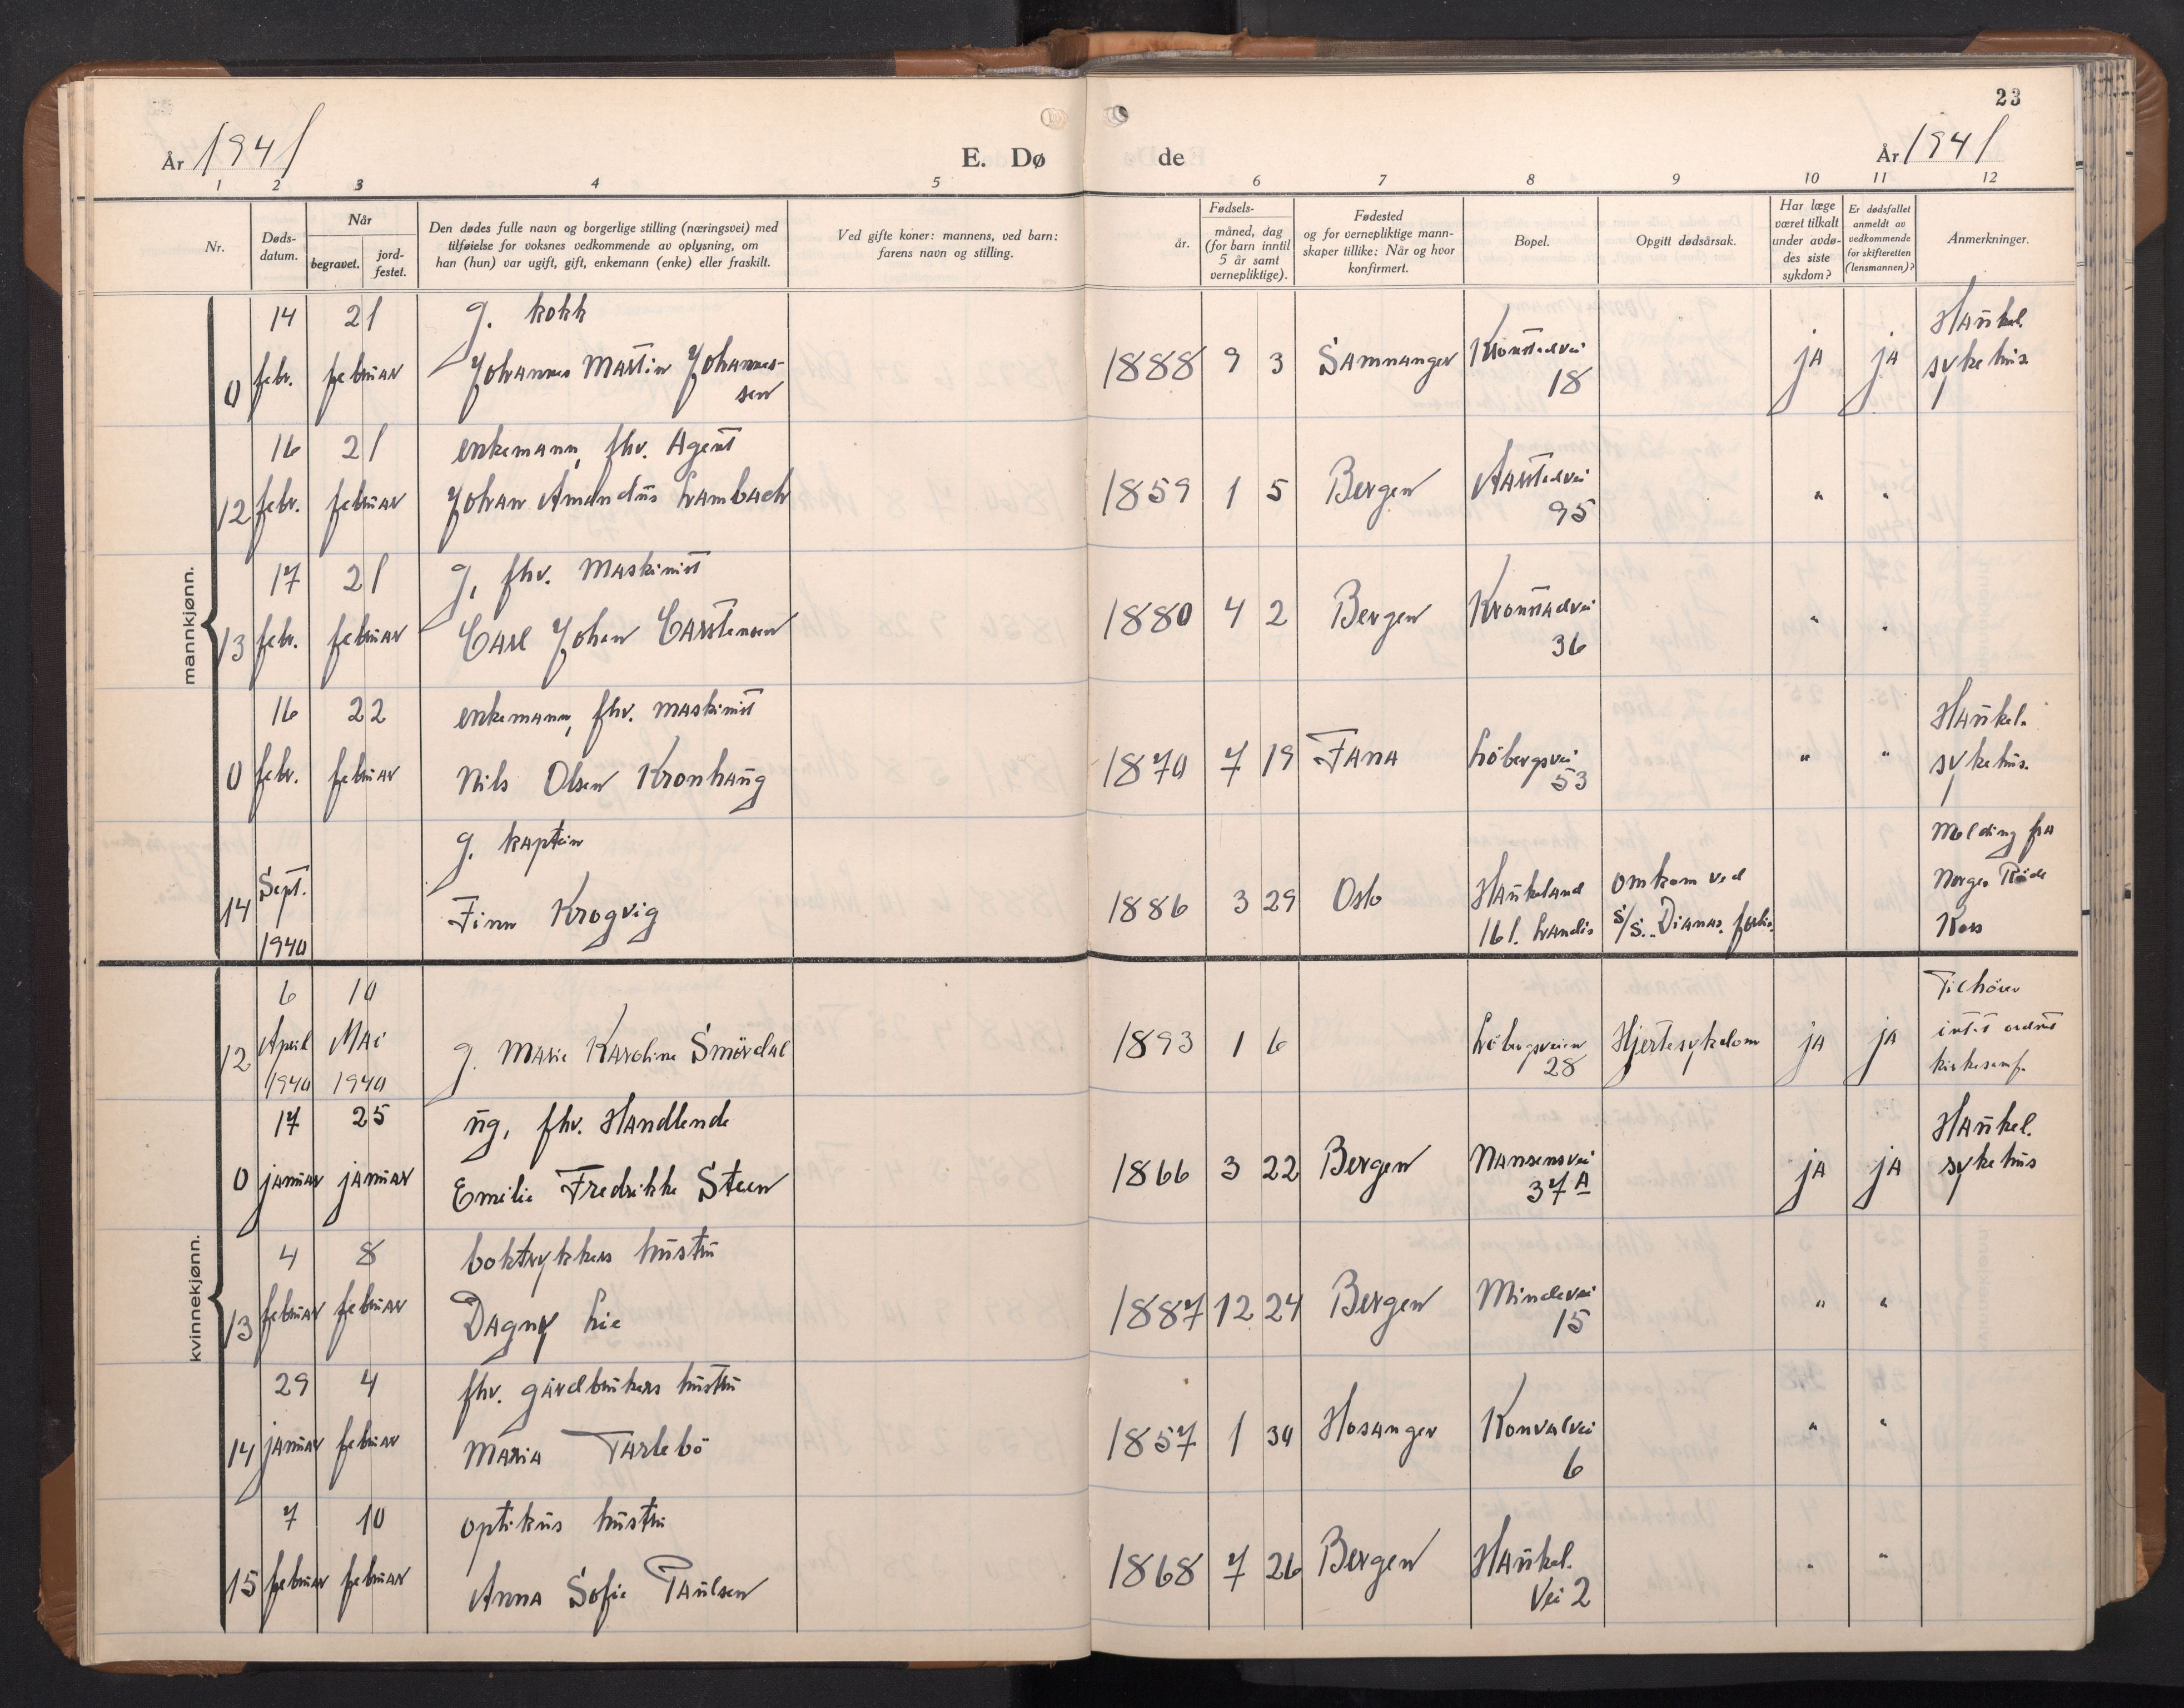 23
År 1941
E. Dø
de
År 1941
1 2 3 4 5 6 7 8 9 10 11 12
Nr.
Døds-
datum.
Når
begravet.
jord-
festet.
Den dødes fulle navn og borgerlige stilling (næringsvei) med
tilføielse for voksnes vedkommende av oplysning, om
han (hun) var ugift, gift, enkemann (enke) eller fraskilt.
Ved gifte koner: mannens, ved barn:
farens navn og stilling.
Fødsels-
år.
måned, dag
(for barn inntil
5 år samt
vernepliktige).
Fødested
og for vernepliktige mann-
skaper tillike: Når og hvor
konfirmert.
Bopel.
Opgitt dødsårsak.
Har læge
været tilkalt
under avdø-
des siste
sykdom?
Er dødsfallet
anmeldt av
vedkommende
for skifteretten
(lensmannen)?
Anmerkninger.
mannkjønn.
14 21 g. kokk Haukel.
0 febr. februar Johannes Martin Johannes- 1888 9 3 Samnanger Kronstadvei ja ja sykehus
sen 18
16 21 enkemann, fhv. Agent
12 febr. februar Johan Amandus Lambach 1859 1 5 Bergen Aarstadvei " "
95
17 21 g, fhv. Maskinist
13 febr. februar Carl Johan Carstensen 1880 4 2 Bergen Kronstadvei " "
36
16 22 enkemann, fhv. maskinist Haukel.
0 febr. februar Nils Olsen Kronhaug 1870 7 19 Fana Løbergsvei " " sykehus.
53
g. kaptein Melding fra
14 Sept. Finn Krogvig 1886 3 29 Oslo Haukeland omkom ved Norges Røde
1940 16 l. Landås S/S. "Dianas" forlis. Kors
kvinnekjønn.
6 10 Tilhører
12 April Mai g. Marie Karoline Smørdal 1893 1 6 Løbergsveien Hjertesykdom ja ja intet ordnet
1940 1940 28 kirkesamf.
17 25 ug, fhv. Handlende Haukel.
0 januar januar Emilie Fredrikke Steen 1866 3 22 Bergen Nansensvei ja ja sykehus
37 A
4 8 boktrykkers hustru
13 februar februar Dagny Lie 1887 12 24 Bergen Mindevei " "
15
29 4 fhv. gårdbrukers hustru
14 januar februar Maria Tarlebø 1857 1 30 Hosanger Konvalvei " "
6
7 10 optikus hustru
15 februar februar Anna Sofie Paulsen 1868 7 26 Bergen Haukel. " "
Vei 2